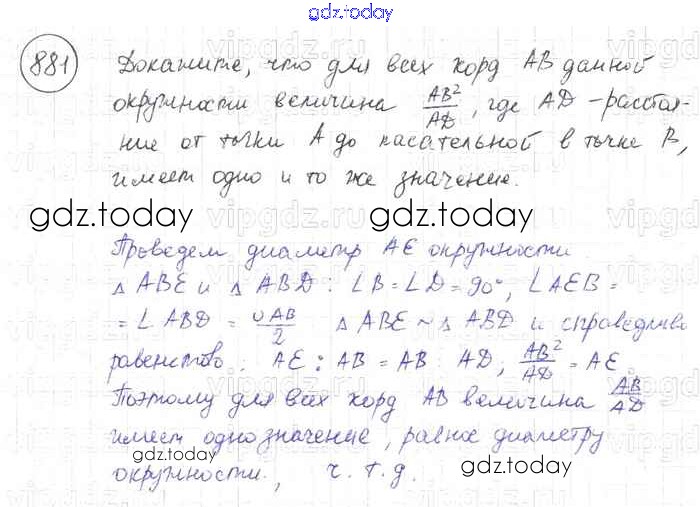 gdz.today
881
Докажите, что для всех хорд AB данной
окружности величина AB²/AD, где AD - расстоя-
ние от точки A до касательной в точке B,
имеет одно и то же значение.
gdz.today gdz.today
Проведем диаметр AE окружности.
△ ABE и △ ABD : ∠B = ∠D = 90°, ∠AEB =
= ∠ABD = ∪AB/2 △ ABE ~ △ ABD и справедливо
равенство : AE : AB = AB : AD, AB²/AD = AE
Поэтому для всех хорд AB величина AB/AD
имеет одно значение, равное диаметру
окружности., ч. т. д.
gdz.today gdz.today